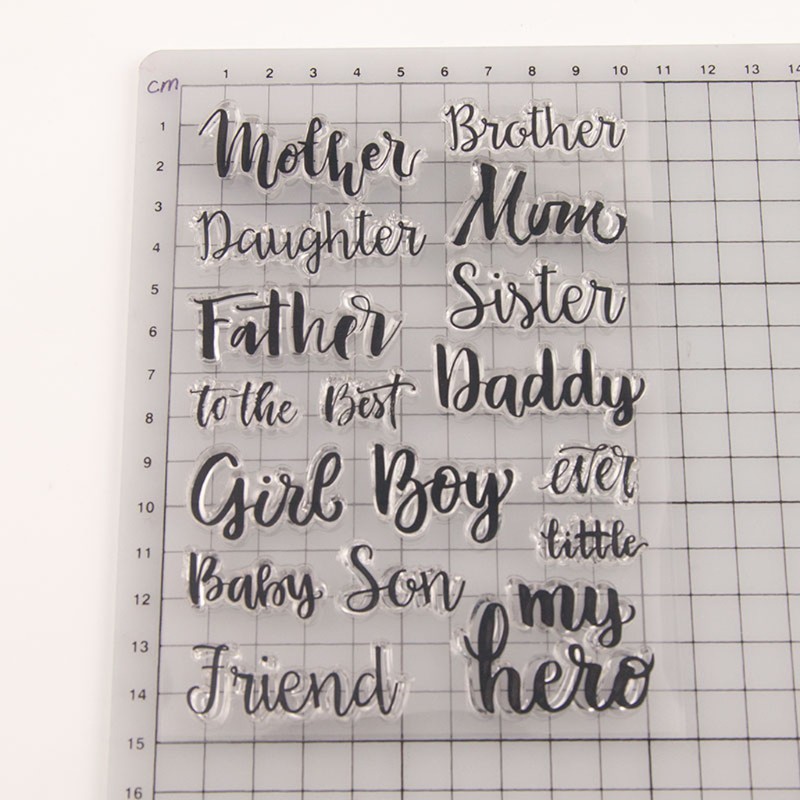 1 2 3 4 5 6 7 8 9 10 11 12 13 14
cm
1
2
3
4
5
6
7
8
9
10
11
12
13
14
15
16
Mother Brother
Mum
Daughter
Sister
Father
Daddy
to the Best
Girl Boy ever
little
Baby Son my
hero
Friend